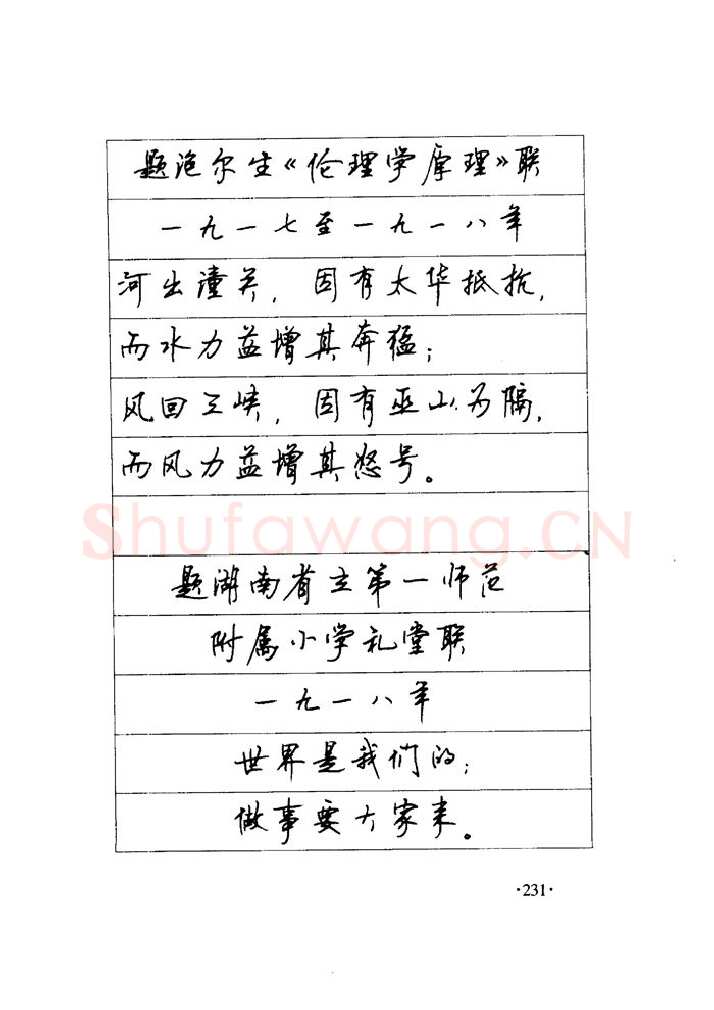 题泡尔生《伦理学原理》联
一九一七至一九一八年
河出潼关，固有太华抵抗，
而水力益增其奔猛；
风回三峡，固有巫山为隔，
而风力益增其怒号。
Shufawang.CN
题湖南省立第一师范
附属小学礼堂联
一九一八年
世界是我们的；
做事要大家来。
·231·